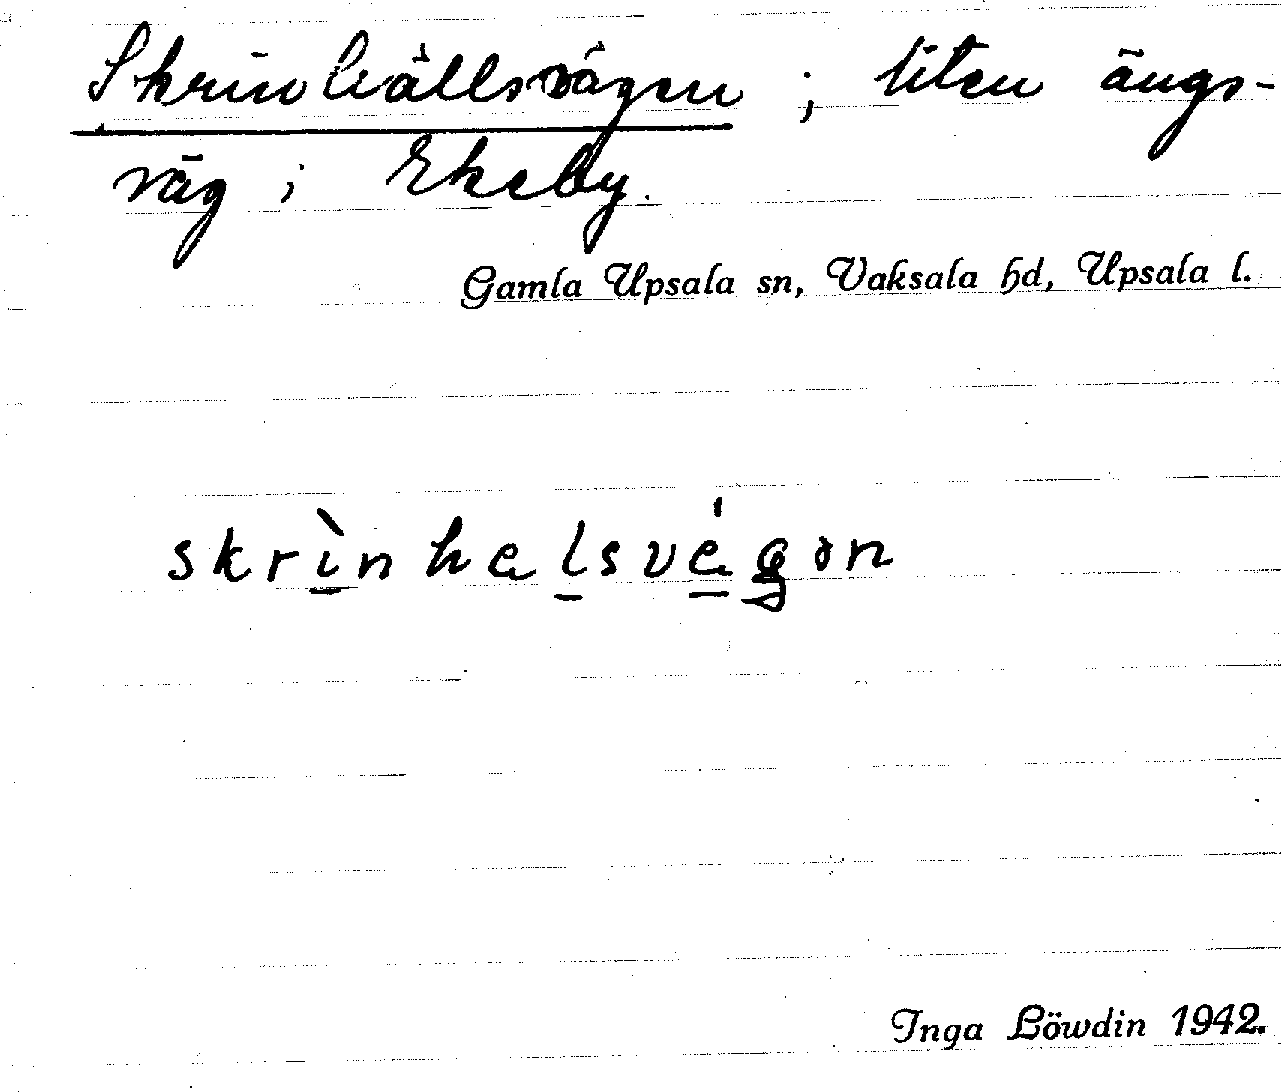 Skrinhällsvägen ; liten ängs-
väg i Ekeby.
Gamla Upsala sn, Vaksala hd, Upsala l.
skrìnhalsvégən
Inga Löwdin 1942.